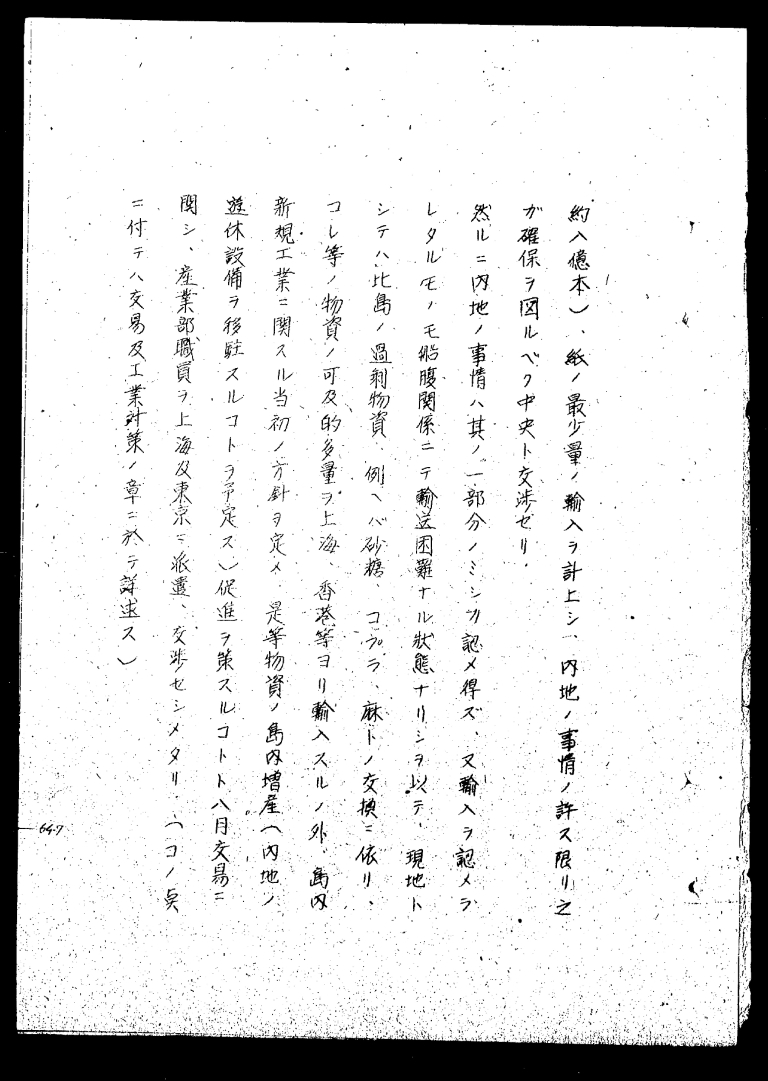 約八億本)、紙ノ最少量ノ輸入ヲ計上シ、内地ノ事情ノ許ス限リ之
ガ確保ヲ図ルベク中央ト交渉セリ.
然ルニ内地ノ事情ハ其ノ一部分ノミシカ認メ得ズ、又輸入ヲ認メラ
レタルモノモ船腹関係ニテ輸送困難ナル状態ナリシヲ以テ、現地ト
シテハ比島ノ過剰物資、例ヘバ砂糖、コプラ、麻トノ交換ニ依リ、
コレ等ノ物資ノ可及的多量ヲ上海、香港等ヨリ輸入スルノ外、島内
新規工業ニ関スル当初ノ方針ヲ定メ 是等物資ノ島内増産(内地ノ
遊休設備ヲ移駐スルコトヲ予定ス)促進ヲ策スルコトト八月交易ニ
関シ、産業部職員ヲ上海及東京ニ派遣、交渉セシメタリ.(コノ点
ニ付テハ交易及工業対策ノ章ニ於テ詳述ス)
649